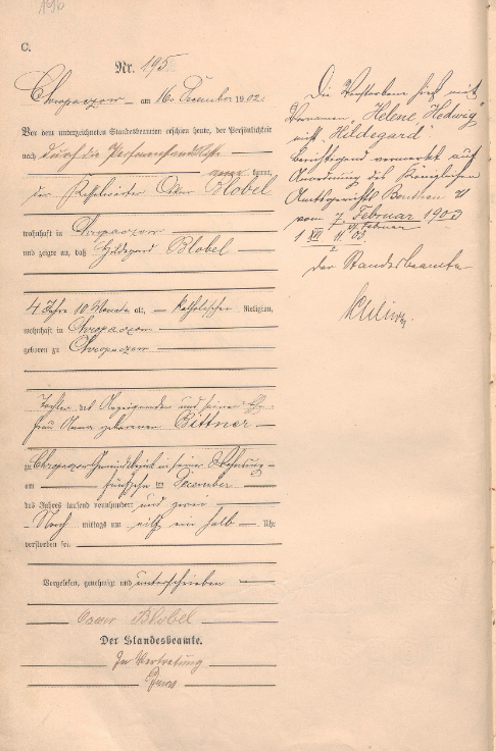 196
C.
Nr. 195
Chropaczow am 16. December 1902
Vor dem unterzeichneten Standesbeamten erschien heute, der Persönlichkeit
nach durch die
kannt,
der Oskar Blobel
wohnhaft in Chropaczow
und zeigte an, daß Hildegard Blobel
4 Jahre 10 Monate alt, katholischer Religion,
wohnhaft in Chropaczow
geboren zu Chropaczow
Tochter des Anzeigenden und seiner Ehe-
frau geborenen Bittner
zu Chropaczow in seiner Wohnung
am fünfzehnten December
des Jahres tausend neunhundert und zwei
Nach mittags um ein halb Uhr
verstorben sei.
Vorgelesen, genehmigt und unterschrieben
Oscar Blobel
Der Standesbeamte.
In Vertretung
Die Verstorbene hieß mit
Vornamen „Helene, Hedwig"
nicht „Hildegard".
Berichtigend vermerkt auf
Anordnung des Königlichen
Amtsgerichts Beuthen
vom 7. Februar 1903
Februar
Der Standesbeamte